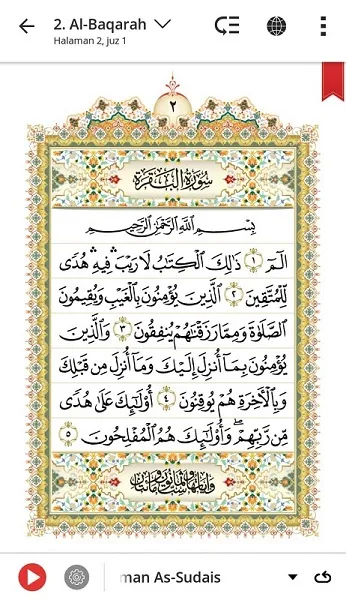 2. Al-Baqarah
Halaman 2, juz 1
٢
سُورَةُ الْبَقَرَةِ
بِسْمِ اللَّهِ الرَّحْمَٰنِ الرَّحِيمِ
الٓمٓ ١ ذَٰلِكَ الْكِتَٰبُ لَا رَيْبَ ۛ فِيهِ ۛ هُدًى
لِّلْمُتَّقِينَ ٢ الَّذِينَ يُؤْمِنُونَ بِالْغَيْبِ وَيُقِيمُونَ
الصَّلَوٰةَ وَمِمَّا رَزَقْنَٰهُمْ يُنفِقُونَ ٣ وَالَّذِينَ
يُؤْمِنُونَ بِمَآ أُنزِلَ إِلَيْكَ وَمَآ أُنزِلَ مِن قَبْلِكَ
وَبِالْآخِرَةِ هُمْ يُوقِنُونَ ٤ أُو۟لَٰٓئِكَ عَلَىٰ هُدًى
مِّن رَّبِّهِمْ ۖ وَأُو۟لَٰٓئِكَ هُمُ الْمُفْلِحُونَ ٥
man As-Sudais